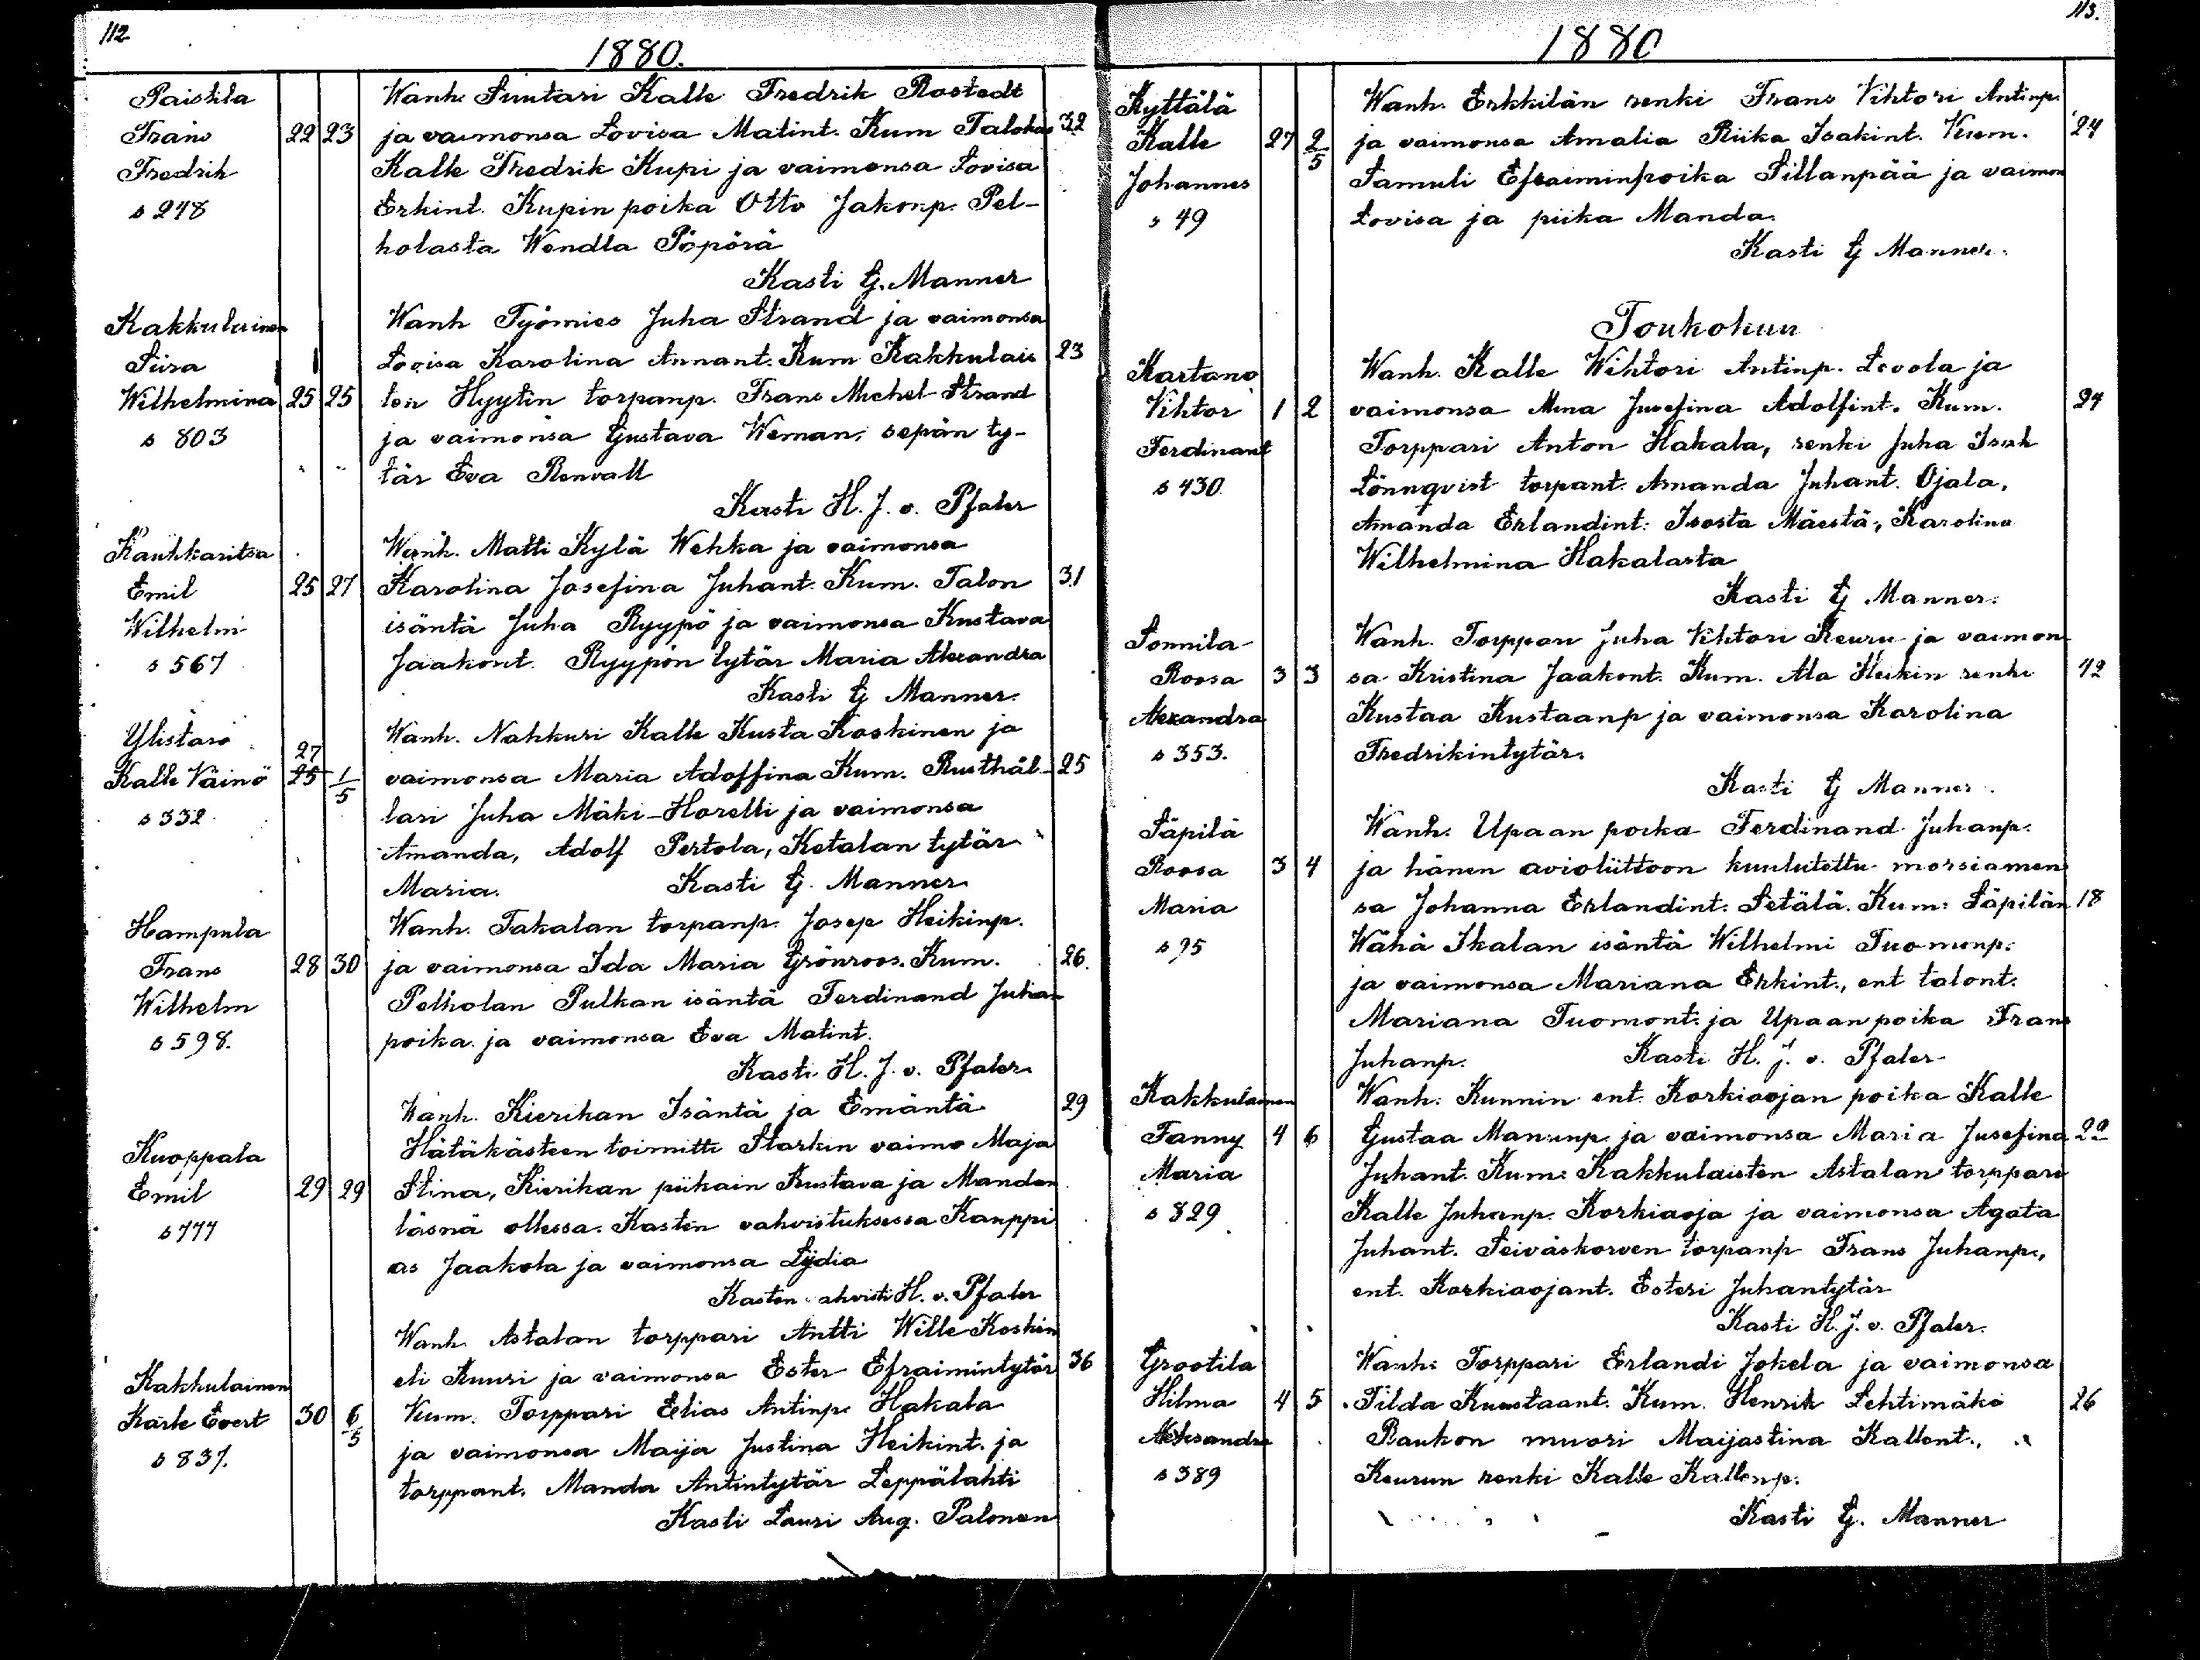 112
1880.
Paistila
Frans
Fredrik
s 248
22 23
Wanh. Suntari Kalle Fredrik Rostedt
ja vaimonsa Lovisa Matint. Kum Talokas 32
Kalle Fredrik Kupi ja vaimonsa Lovisa
Erkint. Kupin poika Otto Jakonp. Pel-
holasta Wendla Pöpörä
Kasti G. Manner
Kakkulainen
Siira
Wilhelmina
s 803
25 25
Wanh Työmies Juha Strand ja vaimonsa
Lovisa Karolina Annant. Kum Kakkulais 23
ten Hyytin torpanp. Frans Michel Strand
ja vaimonsa Gustava Weman, sepän ty-
tär Eva Renvall
Kasti H. J. v. Pfaler
Kauhkaritsa
Emil
Wilhelm
s 567
25 27
Wanh. Matti Kylä Wehka ja vaimonsa
Karolina Josefina Juhant. Kum. Talon 31
isäntä Juha Ryypö ja vaimonsa Kustava
Jaakont. Ryypön tytär Maria Alexandra
Kasti G Manner.
Ylistaro
Kalle Väinö
s 332
27
25 1/5
Wanh. Nahkuri Kalle Kusta Koskinen ja
vaimonsa Maria Adolfina Kum. Rusthål- 25
lari Juha Mäki-Horelli ja vaimonsa
Amanda, Adolf Pertola, Ketalan tytär
Maria. Kasti G. Manner
Hampula
Frans
Wilhelm
s 598.
28 30
Wanh. Takalan torpanp. Josep Heikinp.
ja vaimonsa Ida Maria Grönroos. Kum. 26.
Pelholan Pulkan isäntä Ferdinand Juhan
poika ja vaimonsa Eva Matint.
Kasti H. J. v. Pfaler
Kuoppala
Emil
s 777
29 29
Wanh. Kierikan Isäntä ja Emäntä 29
Hätäkästeen toimitti Starkin vaimo Maja
Stina, Kierikan piikain Kustava ja Mandan
läsnä ollessa. Kasten vahvistuksessa Kauppi
as Jaakola ja vaimonsa Lydia
Kasten ahvisti H. v. Pfaler
Kakkulainen
Karle Evert
s 837.
30 6/5
Wanh Astalan torppari Antti Wille Koskin
eli Kuuri ja vaimonsa Ester Efraimintytär 36
Kum. Torppari Elias Antinp. Hakala
ja vaimonsa Maija Justina Heikint. ja
torppant. Manda Antintytär Leppälahti
Kasti Lauri Aug. Palonen
113.
1880
Kyttälä
Kalle
Johannes
s 49
27 2/5
Wanh. Erkkilän renki Frans Vihtori Antinp.
ja vaimonsa Amalia Riika Isakint. Kum. 24
Samuli Efraiminpoika Sillanpää ja vaimon
Lovisa ja piika Manda.
Kasti G Manner.
Toukokuu
Kartano
Vihtor
Ferdinant
s 430
1 2
Wanh. Kalle Wihtori Antinp. Levola ja
vaimonsa Mina Jusefina Adolfint. Kum. 24
Torppari Anton Hakala, renki Juha Isak
Lönnqvist torpant. Amanda Juhant. Ojala,
Amanda Erlandint. Isosta Mäestä, Karolina
Wilhelmina Hakalasta
Kasti G Manner.
Sonnila
Roosa
Alexandra
s 353.
3 3
Wanh. Torppari Juha Vihtori Keuru ja vaimon
sa Kristina Jaakont. Kum. Ala Heikin renki 42
Kustaa Kustaanp ja vaimonsa Karolina
Fredrikintytär.
Kasti G Manner.
Säpilä
Roosa
Maria
s 95
3 4
Wanh. Upaan poika Ferdinand Juhanp.
ja hänen avioliittoon kuulutettu morsiamen
sa Johanna Erlandint. Setälä. Kum. Säpilän 18
Wähä Ikalan isäntä Wilhelmi Tuomonp.
ja vaimonsa Mariana Erkint., ent talont.
Mariana Tuomont. ja Upaan poika Frans
Juhanp. Kasti H. J. v. Pfaler
Kakkulainen
Fanny
Maria
s 829
4 6
Wanh. Kunnin ent. Korkiaojan poika Kalle
Gustaa Manunp. ja vaimonsa Maria Jusefina
Juhant. Kum. Kakkulaisten Astalan torppari
Kalle Juhanp. Korkiaoja ja vaimonsa Agata
Juhant. Seiväskorven torpanp Frans Juhanp.,
ent. Korkiaojant. Esteri Juhantytär
Kasti H. J. v. Pfaler.
Grootila
Hilma
Aleksandra
s 389
4 5
Wanh. Torppari Erlandi Jokela ja vaimonsa
Tilda Kustaant. Kum. Henrik Lehtimäki 26
Raukon muori Maijastina Kallent.,
Keurun renki Kalle Kallenp.
Kasti G. Manner